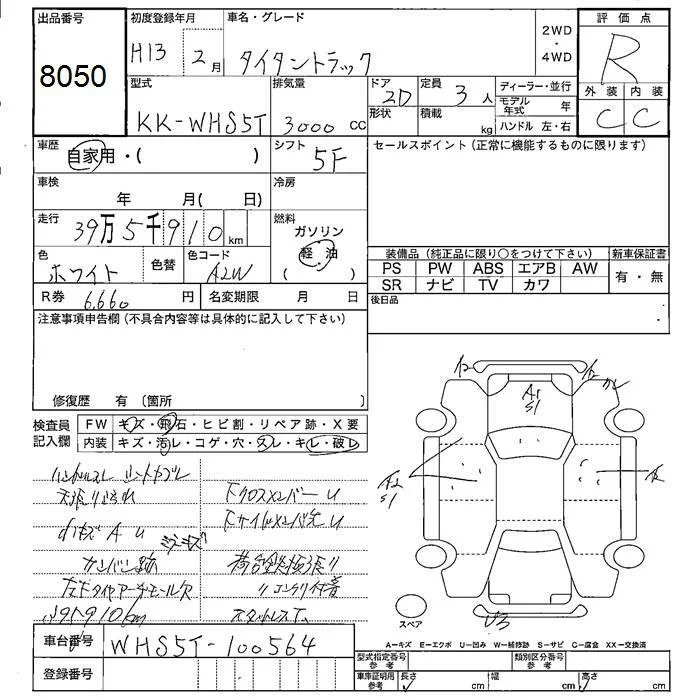 出品番号 初度登録年月 車名・グレード 2WD・4WD 評価点
8050 H13 2月 タイタントラック R
型式 排気量 ドア 2D 定員 3人 ディーラー・並行 外装 内装
KK-WHS5T 3000cc 形状 積載 kg モデル年式 年 C C
ハンドル 左・右
車歴 自家用・( ) シフト 5F セールスポイント(正常に機能するものに限ります)
車検 年 月( 日) 冷房
走行 39万5千910km 燃料 ガソリン
軽油
( )
色 ホワイト 色替 色コード A2W
装備品(純正品に限り○をつけて下さい) 新車保証書
PS PW ABS エアB AW 有・無
SR ナビ TV カワ
R券 6,660円 名変期限 月 日 後日品
注意事項申告欄(不具合内容等は具体的に記入して下さい)
修復歴 有 〔箇所 〕
検査員記入欄 FW キズ・飛石・ヒビ割・リペア跡・X要
内装 キズ・汚レ・コゲ・穴・スレ・キレ・破レ
ハンドルスレ シートヤブレ
下クロスメンバーU
カンバン跡
195910km
A1
S1
A2
S1
U3
スペア
A-キズ E-エクボ U-凹み W-補修跡 S-サビ C-腐食 XX-交換済
車台番号 WHS5T-100564
型式指定番号 参考 類別区分番号 参考
登録番号
車庫証明用 参考 長さ cm 幅 cm 高さ cm